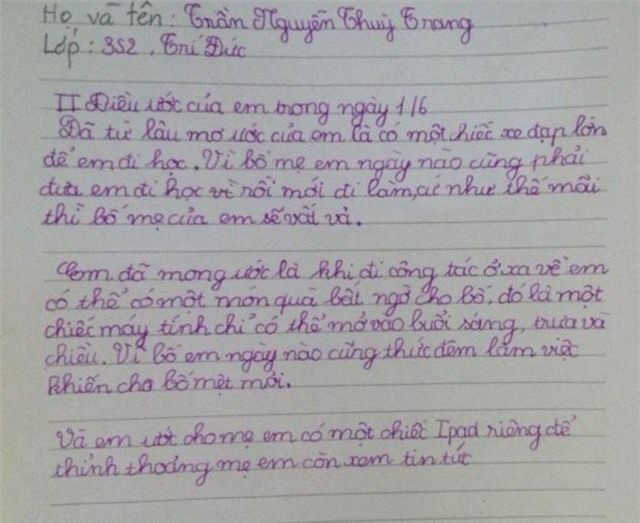 Họ và tên : Trần Nguyễn Thuỳ Trang
Lớp : 3S2 . Trí Đức
II Điều ước của em trong ngày 1/6
Đã từ lâu mơ ước của em là có một chiếc xe đạp lớn
để em đi học. Vì bố mẹ em ngày nào cũng phải
đưa em đi học về rồi mới đi làm, cứ như thế mãi
thì bố mẹ của em sẽ vất vả.
Em đã mong ước là khi đi công tác ở xa về em
có thể có một món quà bất ngờ cho bố, đó là một
chiếc máy tính chỉ có thể mở vào buổi sáng, trưa và
chiều. Vì bố em ngày nào cũng thức đêm làm việc
khiến cho bố mệt mỏi.
Và em ước cho mẹ em có một chiếc Ipad riêng để
thỉnh thoảng mẹ em còn xem tin tức